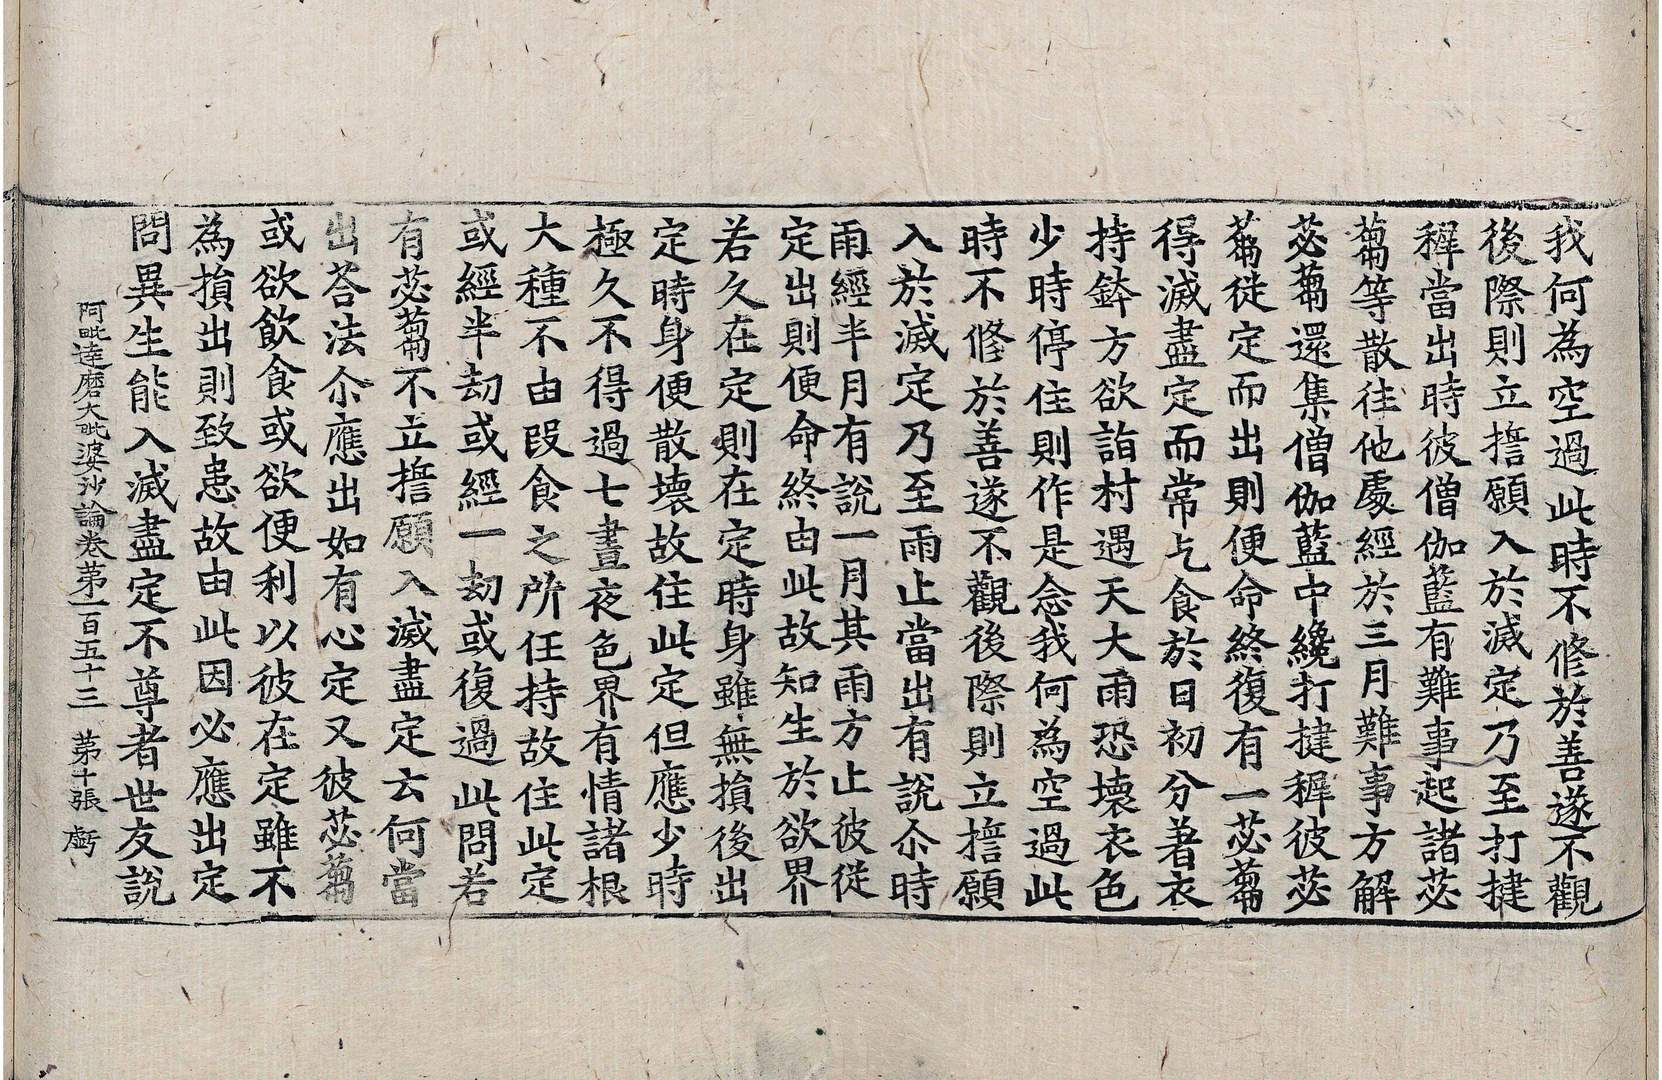 我何為空過此時不修於善遂不觀
後際則立擔願入於滅定乃至打揵
稺當出時彼僧伽藍有難事起諸苾
蒭等散往他處經於三月難事方解
苾蒭還集僧伽藍中纔打揵稺彼苾
蒭從定而出則便命終復有一苾蒭
得滅盡定而常乞食於日初分著衣
持鉢方欲詣村遇天大雨恐壞衣色
少時停住則作是念我何為空過此
時不修於善遂不觀後際則立擔願
入於滅定乃至雨止當出有說尒時
雨經半月有說一月其雨方止彼從
定出則便命終由此故知生於欲界
若久在定則在定時身雖無損後出
定時身便散壞故住此定但應少時
極久不得過七晝夜色界有情諸根
大種不由段食之所任持故住此定
或經半劫或經一劫或復過此問若
有苾蒭不立擔願入滅盡定云何當
出荅法尒應出如有心定又彼苾蒭
或欲飲食或欲便利以彼在定雖不
為損出則致患故由此因必應出定
問異生能入滅盡定不尊者世友說
阿毗達磨大毗婆沙論卷苐一百五十三 苐十張 虧